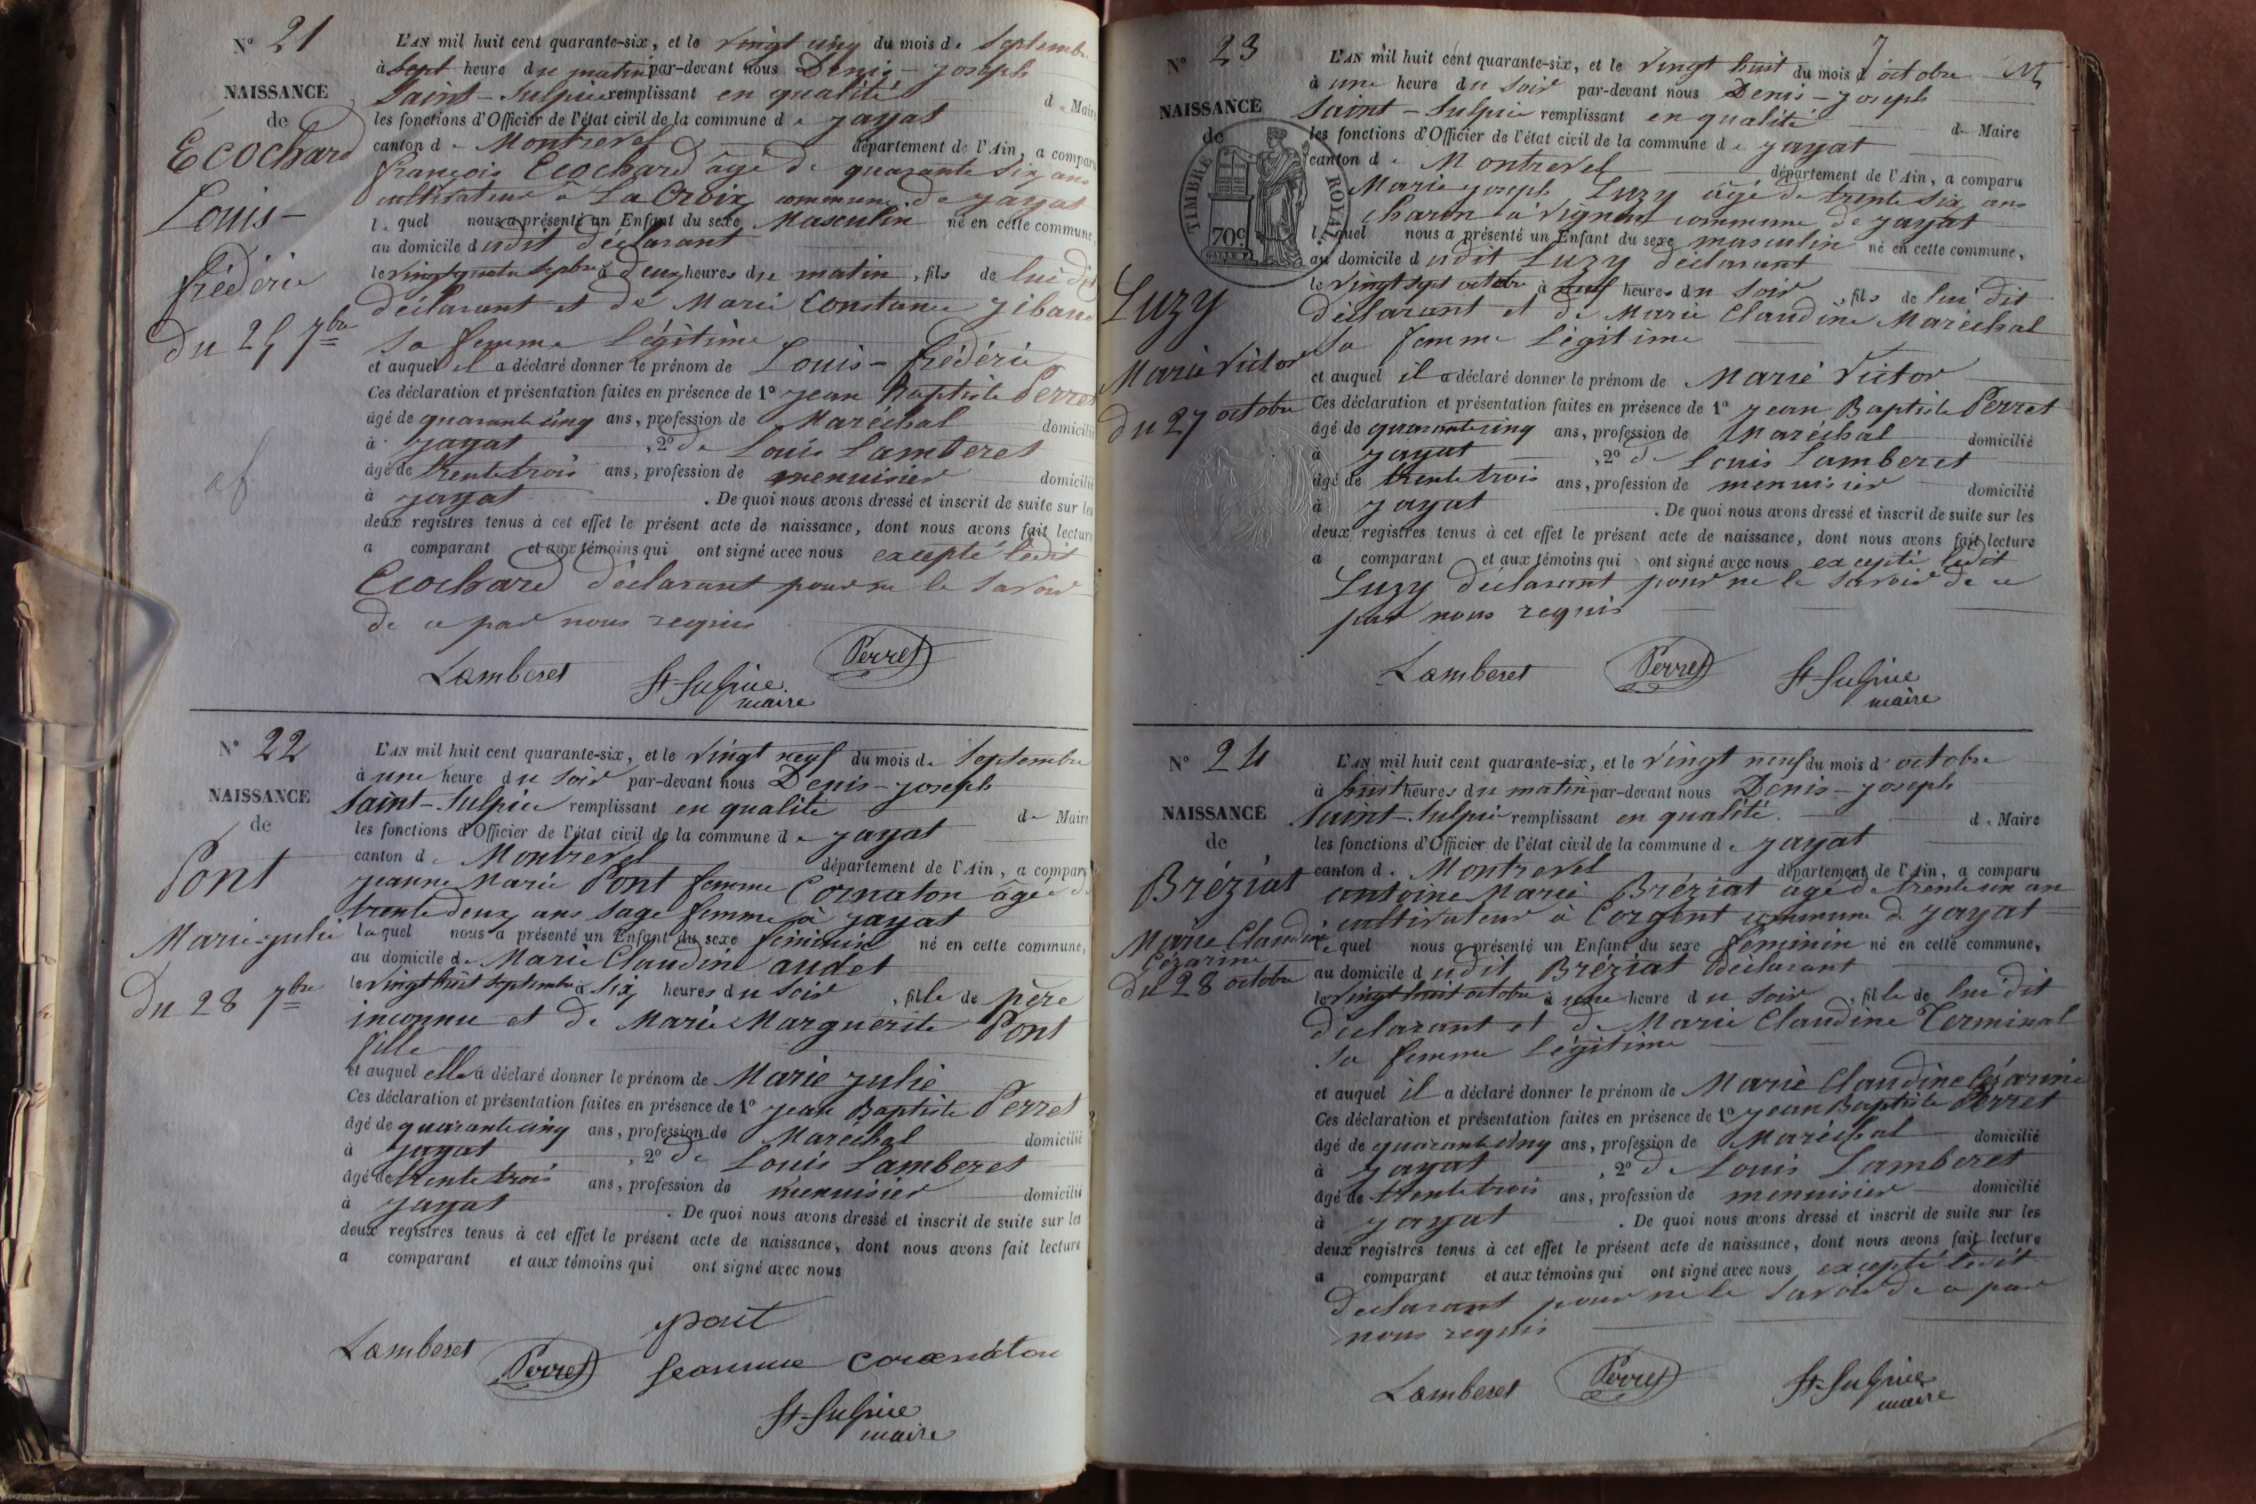 N° 21
NAISSANCE
de
Ecochard
Louis-
frédéric
du 24 7bre
L'AN mil huit cent quarante-six, et le vingt cinq du mois de Septembre
à sept heure du matin par-devant nous Denis-joseph
Saint-Sulpice remplissant en qualité de Maire
les fonctions d'Officier de l'état civil de la commune de jayat
canton de Montrevel département de l'Ain, a comparu
françois Ecochard âgé de quarante six ans
cultivateur à La Croix commune de jayat
lequel nous a présenté un Enfant du sexe Masculin né en cette commune,
au domicile dudit déclarant
le vingt quatre Septbre à deux heures du matin, fils de lui dit
déclarant et de Marie Constance
sa femme légitime
et auquel il a déclaré donner le prénom de Louis-frédéric
Ces déclaration et présentation faites en présence de 1° jean Baptiste Perret
âgé de quarante cinq ans, profession de Maréchal domicilié
à jayat, 2° de Louis Lamberet
âgé de trente trois ans, profession de menuisier domicilié
à jayat. De quoi nous avons dressé et inscrit de suite sur les
deux registres tenus à cet effet le présent acte de naissance, dont nous avons fait lecture
a comparant et aux témoins qui ont signé avec nous excepté ledit
Ecochard déclarant pour ne le savoir
de ce par nous requis
Lamberet St-Sulpice maire Perret
N° 22
NAISSANCE
de
Pont
Marie-julie
du 28 7bre
L'AN mil huit cent quarante-six, et le vingt neuf du mois de Septembre
à une heure du soir par-devant nous Denis-joseph
Saint-Sulpice remplissant en qualité de Maire
les fonctions d'Officier de l'état civil de la commune de jayat
canton de Montrevel département de l'Ain, a comparu
jeanne Marie Pont femme Cornaton âgée de
trente deux ans sage femme à jayat
laquel nous a présenté un Enfant du sexe féminin né en cette commune,
au domicile de Marie Claudine audet
le vingt huit septembre à six heures du soir, fille de père
inconnu et de Marie Marguerite Pont
fille
et auquel elle a déclaré donner le prénom de Marie julie
Ces déclaration et présentation faites en présence de 1° jean Baptiste Perret
âgé de quarante cinq ans, profession de Maréchal domicilié
à jayat, 2° de Louis Lamberet
âgé de trente trois ans, profession de menuisier domicilié
à jayat. De quoi nous avons dressé et inscrit de suite sur les
deux registres tenus à cet effet le présent acte de naissance, dont nous avons fait lecture
a comparant et aux témoins qui ont signé avec nous
pont
Lamberet Perret
St-Sulpice
maire
7
N° 23
NAISSANCE
de
TIMBRE ROYAL
70c
Luzy
Marie Victor
du 27 octobre
L'AN mil huit cent quarante-six, et le vingt huit du mois d'octobre
à une heure du soir par-devant nous Denis-joseph
Saint-Sulpice remplissant en qualité de Maire
les fonctions d'Officier de l'état civil de la commune de jayat
canton de Montrevel département de l'Ain, a comparu
Marie joseph Luzy âgé de trente six ans
charon à commune de jayat
lequel nous a présenté un Enfant du sexe masculin né en cette commune,
au domicile dudit Luzy déclarant
le vingt sept octobre à heures du soir, fils de lui dit
déclarant et de Marie Claudine Maréchal
sa femme légitime
et auquel il a déclaré donner le prénom de Marie Victor
Ces déclaration et présentation faites en présence de 1° jean Baptiste Perret
âgé de quarante cinq ans, profession de Maréchal domicilié
à jayat, 2° de Louis Lamberet
âgé de trente trois ans, profession de menuisier domicilié
à jayat. De quoi nous avons dressé et inscrit de suite sur les
deux registres tenus à cet effet le présent acte de naissance, dont nous avons fait lecture
a comparant et aux témoins qui ont signé avec nous excepté ledit
Luzy déclarant pour ne le savoir de ce
par nous requis
Lamberet Perret St-Sulpice
maire
N° 24
NAISSANCE
de
Bréziat
Marie Claudine
Cézarine
du 28 octobre
L'AN mil huit cent quarante-six, et le vingt neuf du mois d'octobre
à huit heures du matin par-devant nous Denis-joseph
Saint-Sulpice remplissant en qualité de Maire
les fonctions d'Officier de l'état civil de la commune de jayat
canton de Montrevel département de l'Ain, a comparu
antoine Marie Bréziat âgé de trente un an
cultivateur à Corgent commune de jayat
lequel nous a présenté un Enfant du sexe féminin né en cette commune,
au domicile dudit Bréziat déclarant
le vingt huit octobre à une heure du soir, fille de lui dit
déclarant et de Marie Claudine Terminal
sa femme légitime
et auquel il a déclaré donner le prénom de Marie Claudine Cézarine
Ces déclaration et présentation faites en présence de 1° jean Baptiste Perret
âgé de quarante cinq ans, profession de Maréchal domicilié
à jayat, 2° de Louis Lamberet
âgé de trente trois ans, profession de menuisier domicilié
à jayat. De quoi nous avons dressé et inscrit de suite sur les
deux registres tenus à cet effet le présent acte de naissance, dont nous avons fait lecture
a comparant et aux témoins qui ont signé avec nous excepté ledit
déclarant pour ne le savoir de ce par
nous requis
Lamberet Perret St-Sulpice
maire